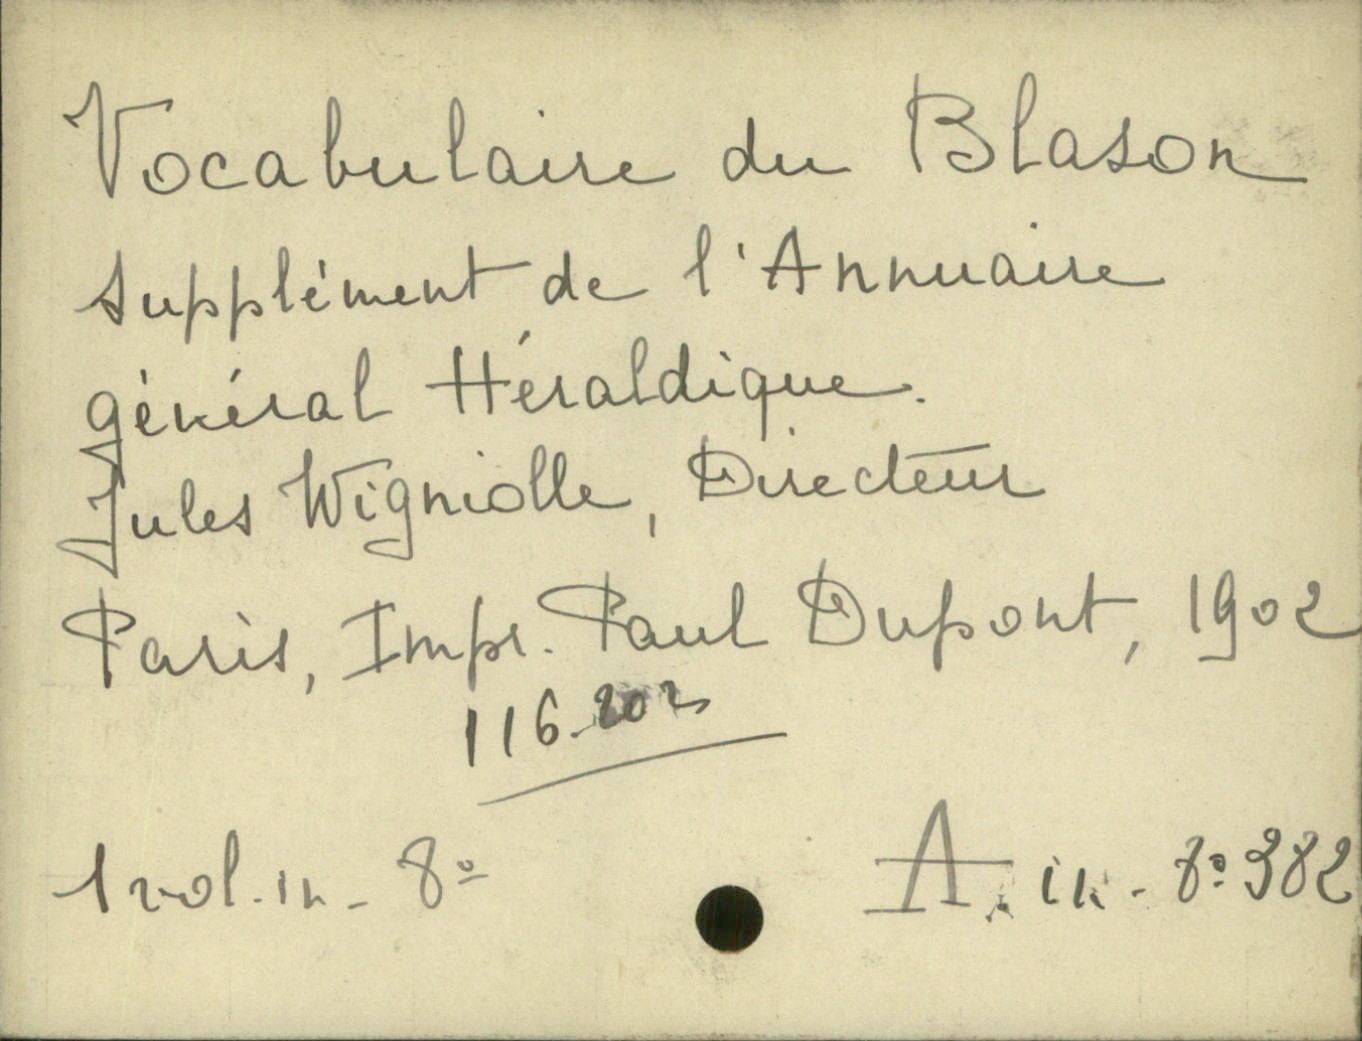 Vocabulaire du Blason
supplément de l'Annuaire
général Héraldique.
Jules Wigniolle, Directeur
Paris, Impr. Paul Dupont, 1902
116.202
1 vol. in-8º
A. in-8º 382